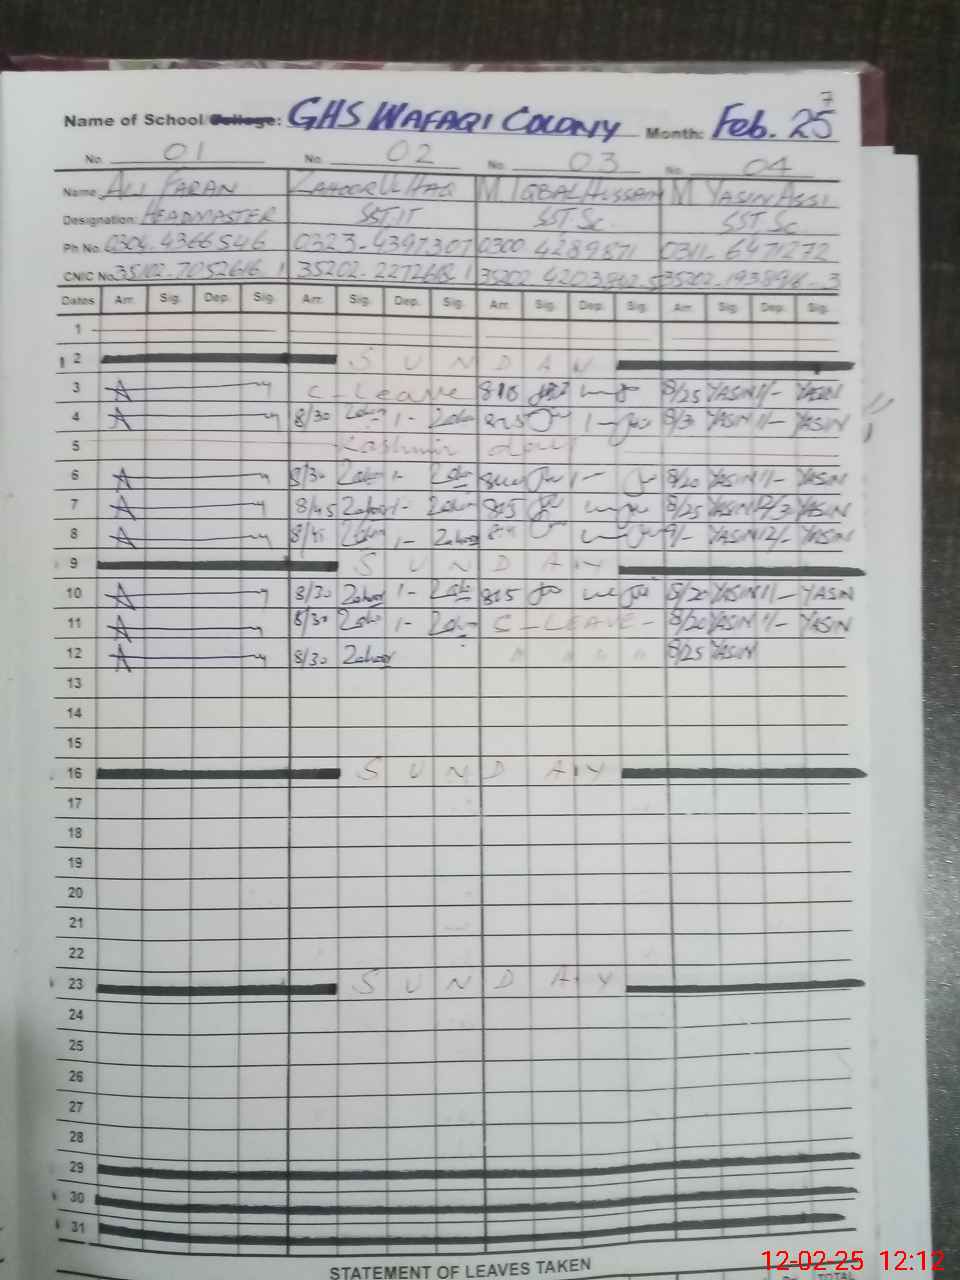 7
Name of School/College: GHS WAFAQI COLONY Month: Feb. 25
No. 01 No. 02 No. 03 No. 04
Name ALI FARAN ZAHOOR UL HAQ M IQBAL HUSSAIN M YASIN ASSI
Designation: HEADMASTER SST.IT SST.Sc. SST.Sc
Ph No. 0304-4366546 0323-4397307 0300 4289871 0311-6471272
CNIC No. 35102-7052616-1 35202-2272682-1 35202-
Dates Arr. Sig. Dep. Sig. Arr. Sig. Dep. Sig. Arr. Sig. Dep. Sig. Arr. Sig. Dep. Sig.
1
2 S U N D A
3 C-Leave 8/25 YASIN 1/- YASIN
4 8/30 1- YASIN 1/- YASIN
5 Kashmir day
6 8/30 1- 8/20 YASIN 1/- YASIN
7 8/45 1- 825 8/25 YASIN YASIN
8 8/45 1- 9/- YASIN 12/- YASIN
9 S U N D A Y
10 8/30 Zahoor 1- 825 8/20 YASIN 1/- YASIN
11 8/30 1- C-LEAVE- 8/20 YASIN 1/- YASIN
12 8/30 Zahoor 8/25 YASIN
13
14
15
16 S U N D A Y
17
18
19
20
21
22
23 S U N D A Y
24
25
26
27
28
29
30
31
STATEMENT OF LEAVES TAKEN
TOTAL
12-02-25 12:12